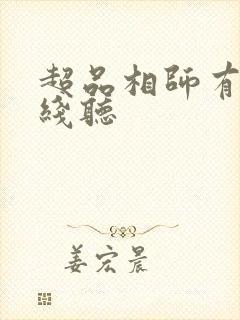 超品相师有
线聽
姜宏晨